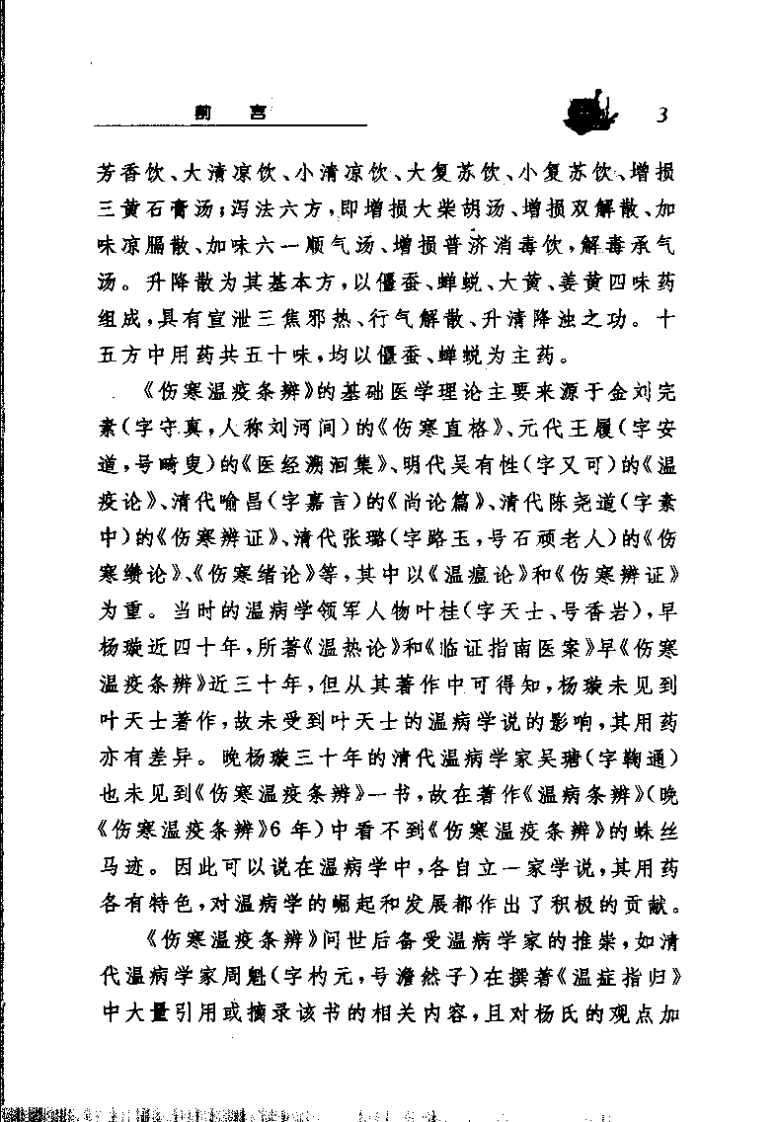 前言
3
芳香饮、大清凉饮、小清凉饮、大复苏饮、小复苏饮、增损
三黄石膏汤;泻法六方,即增损大柴胡汤、增损双解散、加
味凉膈散、加味六一顺气汤、增损普济消毒饮,解毒承气
汤。升降散为其基本方,以僵蚕、蝉蜕、大黄、姜黄四味药
组成,具有宣泄三焦邪热、行气解散、升清降浊之功。十
五方中用药共五十味,均以僵蚕、蝉蜕为主药。
《伤寒温疫条辨》的基础医学理论主要来源于金刘完
素(字守真,人称刘河间)的《伤寒直格》、元代王履(字安
道,号畸叟)的《医经溯洄集》、明代吴有性(字又可)的《温
疫论》、清代喻昌(字嘉言)的《尚论篇》、清代陈尧道(字素
中)的《伤寒辨证》、清代张璐(字路玉,号石顽老人)的《伤
寒缵论》、《伤寒绪论》等,其中以《温瘟论》和《伤寒辨证》
为重。当时的温病学领军人物叶桂(字天士、号香岩),早
杨璇近四十年,所著《温热论》和《临证指南医案》早《伤寒
温疫条辨》近三十年,但从其著作中可得知,杨璇未见到
叶天士著作,故未受到叶天士的温病学说的影响,其用药
亦有差异。晚杨璇三十年的清代温病学家吴瑭(字鞠通)
也未见到《伤寒温疫条辨》一书,故在著作《温病条辨》(晚
《伤寒温疫条辨》6年)中看不到《伤寒温疫条辨》的蛛丝
马迹。因此可以说在温病学中,各自立一家学说,其用药
各有特色,对温病学的崛起和发展都作出了积极的贡献。
《伤寒温疫条辨》问世后备受温病学家的推崇,如清
代温病学家周魁(字杓元,号澹然子)在撰著《温症指归》
中大量引用或摘录该书的相关内容,且对杨氏的观点加